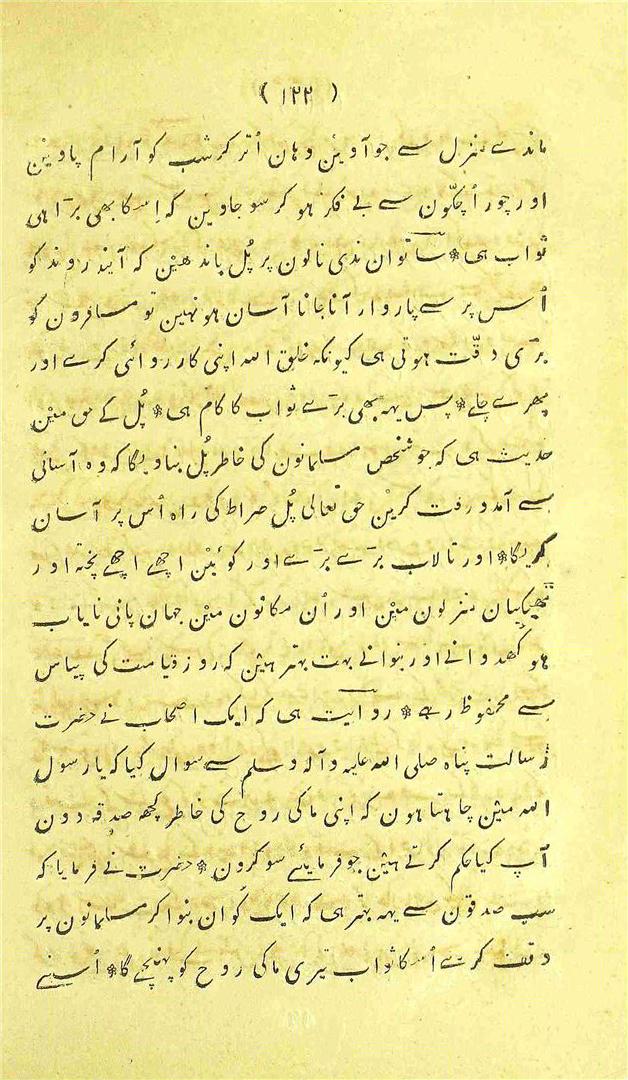 ( ۱۲۲ )
ماندے منزل سے جو آوین وہان اُتر کر شب کو آرام پاوین
اور چور اُچکّون سے بے فکر ہو کر سو جاوین کہ اِسکا بھی بڑا ہی
ثواب ہی * ساتوان ندی نالون پر پُل باندھین کہ آیند روند کو
اُس پر سے پار وار آنا جانا آسان ہو نہین تو مسافرون کو
بڑی دقّت ہوتی ہی کیونکہ خلق اللہ اپنی کار روائی کرے اور
پھرے چلے * پس یہہ بھی بڑے ثواب کا کام ہی * پُل کے حق مین
حدیث ہی کہ جو شخص مسلمانون کی خاطر پُل بناویگا کہ وہ آسانی
سے آمد و رفت کرین حق تعالی پُل صراط کی راہ اُس پر آسان
کریگا * اور تالاب بڑے بڑے اور کوئین اچھے اچھے پختہ اور
منزلون مین اور اُن مکانون مین جہان پانی نایاب
ہو کھدوانے اور بنوانے بہت بہتر ہین کہ روز قیامت کی پیاس
سے محفوظ رہے * روایت ہی کہ ایک اصحاب نے حضرت
رسالت پناہ صلی اللہ علیہ و آلہ وسلم سے سوال کیا کہ یا رسول
اللہ مین چاہتا ہون کہ اپنی ما کی روح کی خاطر کچھ صدقہ دون
آپ کیا حکم کرتے ہین جو فرمائیے سو کرون * حضرت نے فرمایا کہ
سب صدقون سے یہہ بہتر ہی کہ ایک کوان بنوا کر مسلمانون پر
وقف کرے اُسکا ثواب تیری ما کی روح کو پہنچے گا * اُسنے